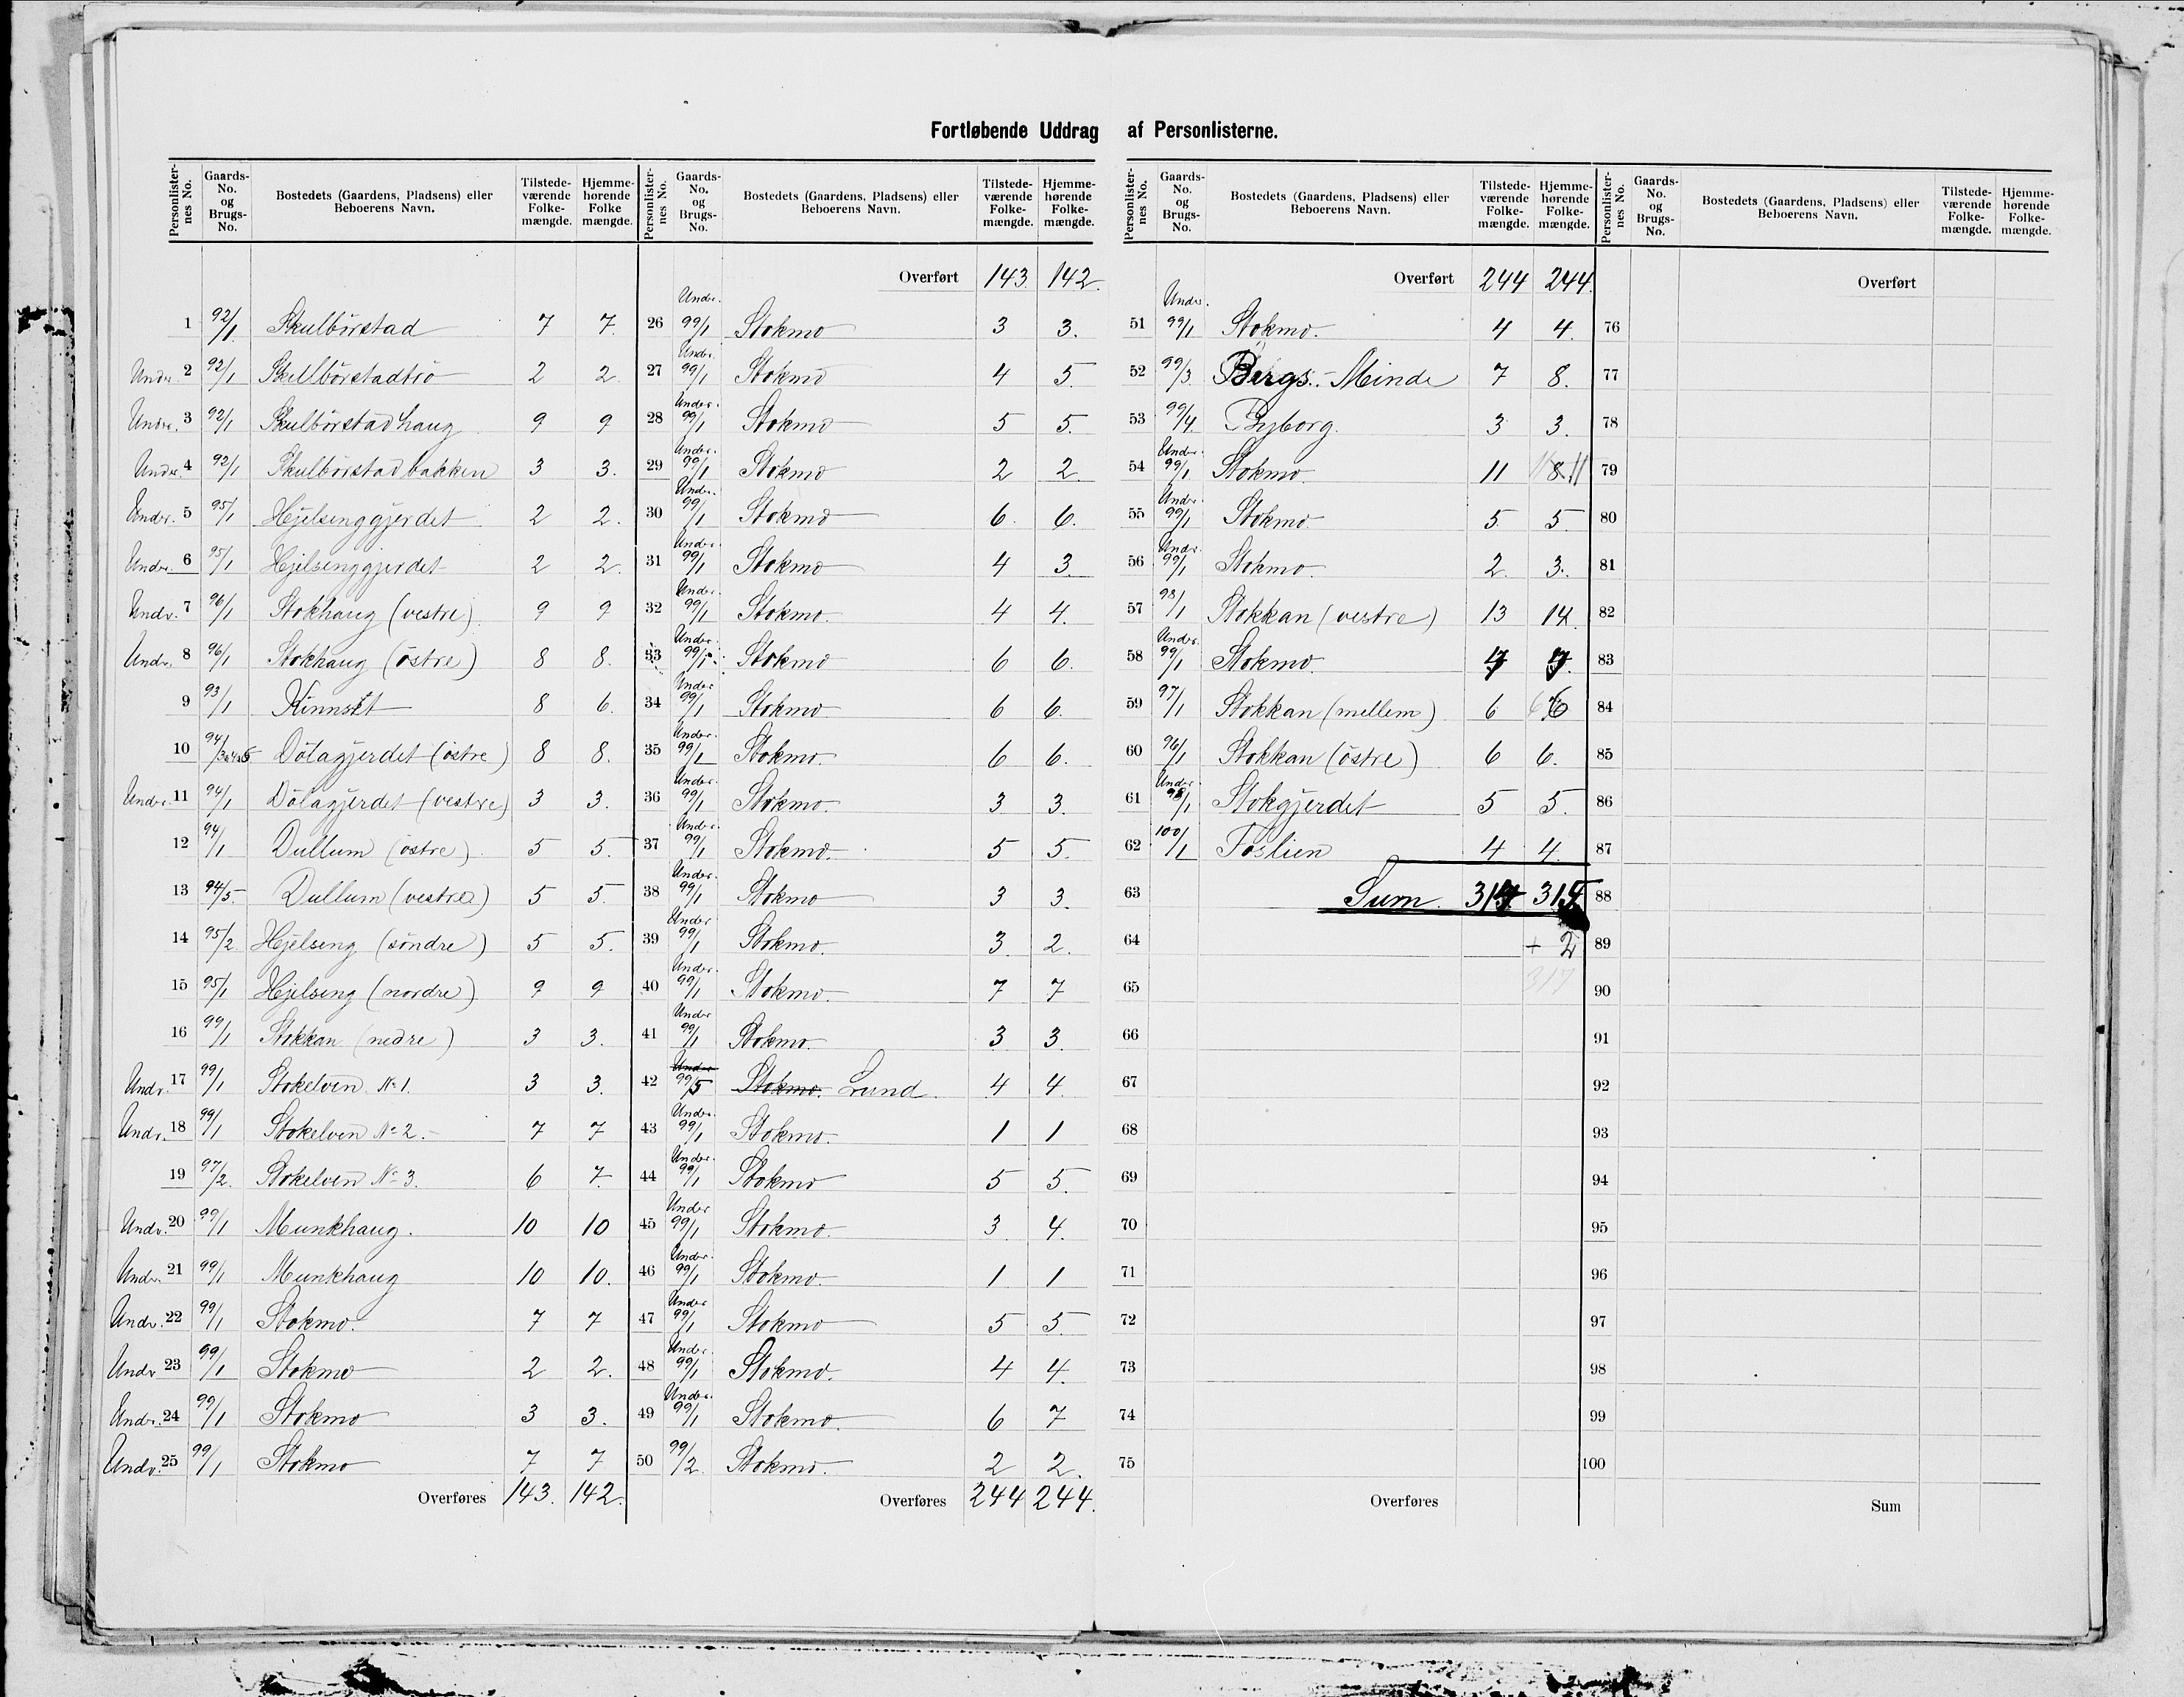 Fortløbende Uddrag af Personlisterne.
Personlister-nes No. | Gaards-No. og Brugs-No. | Bostedets (Gaardens, Pladsens) eller Beboerens Navn. | Tilstede-værende Folke-mængde. | Hjemme-hørende Folke mængde.
1 92/1 Skulbörstad 7 7.
Under 2 92/1 Skulbörstadtrö 2 2.
Under. 3 92/1 Skulbörstadhaug 9 9
Under. 4 92/1 Skulbörstadbakken 3 3.
Under. 5 95/1 Hjelsenggjerdet 2 2.
Under. 6 95/1 Hjelsenggjerdet 2 2.
Under. 7 96/1 Stokhaug (vestre) 9 9
Under. 8 96/1 Stokhaug (östre) 8 8.
9 93/1 Kinnset 8 6.
10 94/3a4a5 Dölagjerdet (östre) 8 8.
Under. 11 94/1 Dölagjerdet (vestre) 3 3.
12 94/1 Dullum (östre) 5 5.
13 94/5. Dullum (vestre) 5 5.
14 95/2. Hjelseng (söndre) 5 5.
15 95/1 Hjelseng (nordre) 9 9
16 99/1 Stokkan (nedre) 3 3.
Under. 17 99/1 Stokelven No 1. 3 3.
Under. 18 99/1 Stokelven No 2. 7 7
19 97/2. Stokelven No 3. 6 7.
Under. 20 99/1 Munkhaug. 10 10
Under. 21 99/1 Munkhaug 10 10.
Under. 22 99/1 Stokmo. 7 7
Under 23 99/1 Stokmo 2 2.
Under. 24 99/1 Stokmo 3 3.
Under. 25 99/1 Stokmo 7 7
Overføres 143. 142.
Personlister-nes No. | Gaards-No. og Brugs-No. | Bostedets (Gaardens, Pladsens) eller Beboerens Navn. | Tilstede-værende Folke-mængde. | Hjemme-hørende Folke-mængde.
Overført 143. 142.
26 Under. 99/1 Stokmo 3 3.
27 Under. 99/1 Stokmo 4 5.
28 Under. 99/1 Stokmo 5 5.
29 Under. 99/1 Stokmo 2 2.
30 Under. 99/1 Stokmo 6. 6.
31 Under. 99/1 Stokmo 4 3.
32 Under. 99/1 Stokmo. 4 4.
33 Under. 99/1 Stokmo 6 6.
34 Under 99/1 Stokmo 6 6.
35 Under. 99/1 Stokmo. 6 6.
36 Under. 99/1 Stokmo. 3 3.
37 Under. 99/1 Stokmo. 5 5.
38 Under. 99/1 Stokmo 3 3.
39 Under 99/1 Stokmo. 3 2.
40 Under. 99/1 Stokmo. 7 7
41 Under 99/1 Stokmo. 3 3.
42 Under 99/5 Stokmo. Lund. 4 4.
43 Under. 99/1 Stokmo. 1 1
44 Under. 99/1 Stokmo 5 5.
45 Under 99/1 Stokmo. 3 4.
46 Under. 99/1 Stokmo. 1 1
47 Under 99/1 Stokmo 5 5.
48 Under. 99/1 Stokmo. 4 4.
49 Under. 99/1 Stokmo. 6 7
50 99/2. Stokmo. 2 2.
Overføres 244 244.
Personlister-nes No. | Gaards-No. og Brugs-No. | Bostedets (Gaardens, Pladsens) eller Beboerens Navn. | Tilstede-værende Folke-mængde. | Hjemme-hørende Folke-mængde.
Overført 244 244.
51 Under. 99/1 Stokmo. 4 4.
52 99/3. Bergs-Minde 7 8.
53 99/4. Byborg. 3 3.
54 Under 99/1 Stokmo. 11 11 8 11
55 Under. 99/1 Stokmo 5 5.
56 Under. 99/1 Stokmo. 2. 3.
57 98/1 Stokkan (vestre) 13 14.
58 Under. 99/1 Stokmo
59 97/1 Stokkan (mellem) 6 6
60 96/1 Stokkan (östre) 6 6.
61 Under 98/1 Stokgjerdet 5 5.
62 100/1 Foslien 4 4.
63 Sum
64 + 2
65 317
66
67
68
69
70
71
72
73
74
75
Overføres
Personlister-nes No. | Gaards-No. og Brugs-No. | Bostedets (Gaardens, Pladsens) eller Beboerens Navn. | Tilstede-værende Folke-mængde. | Hjemme-hørende Folke-mængde.
Overført
76
77
78
79
80
81
82
83
84
85
86
87
88
89
90
91
92
93
94
95
96
97
98
99
100
Sum